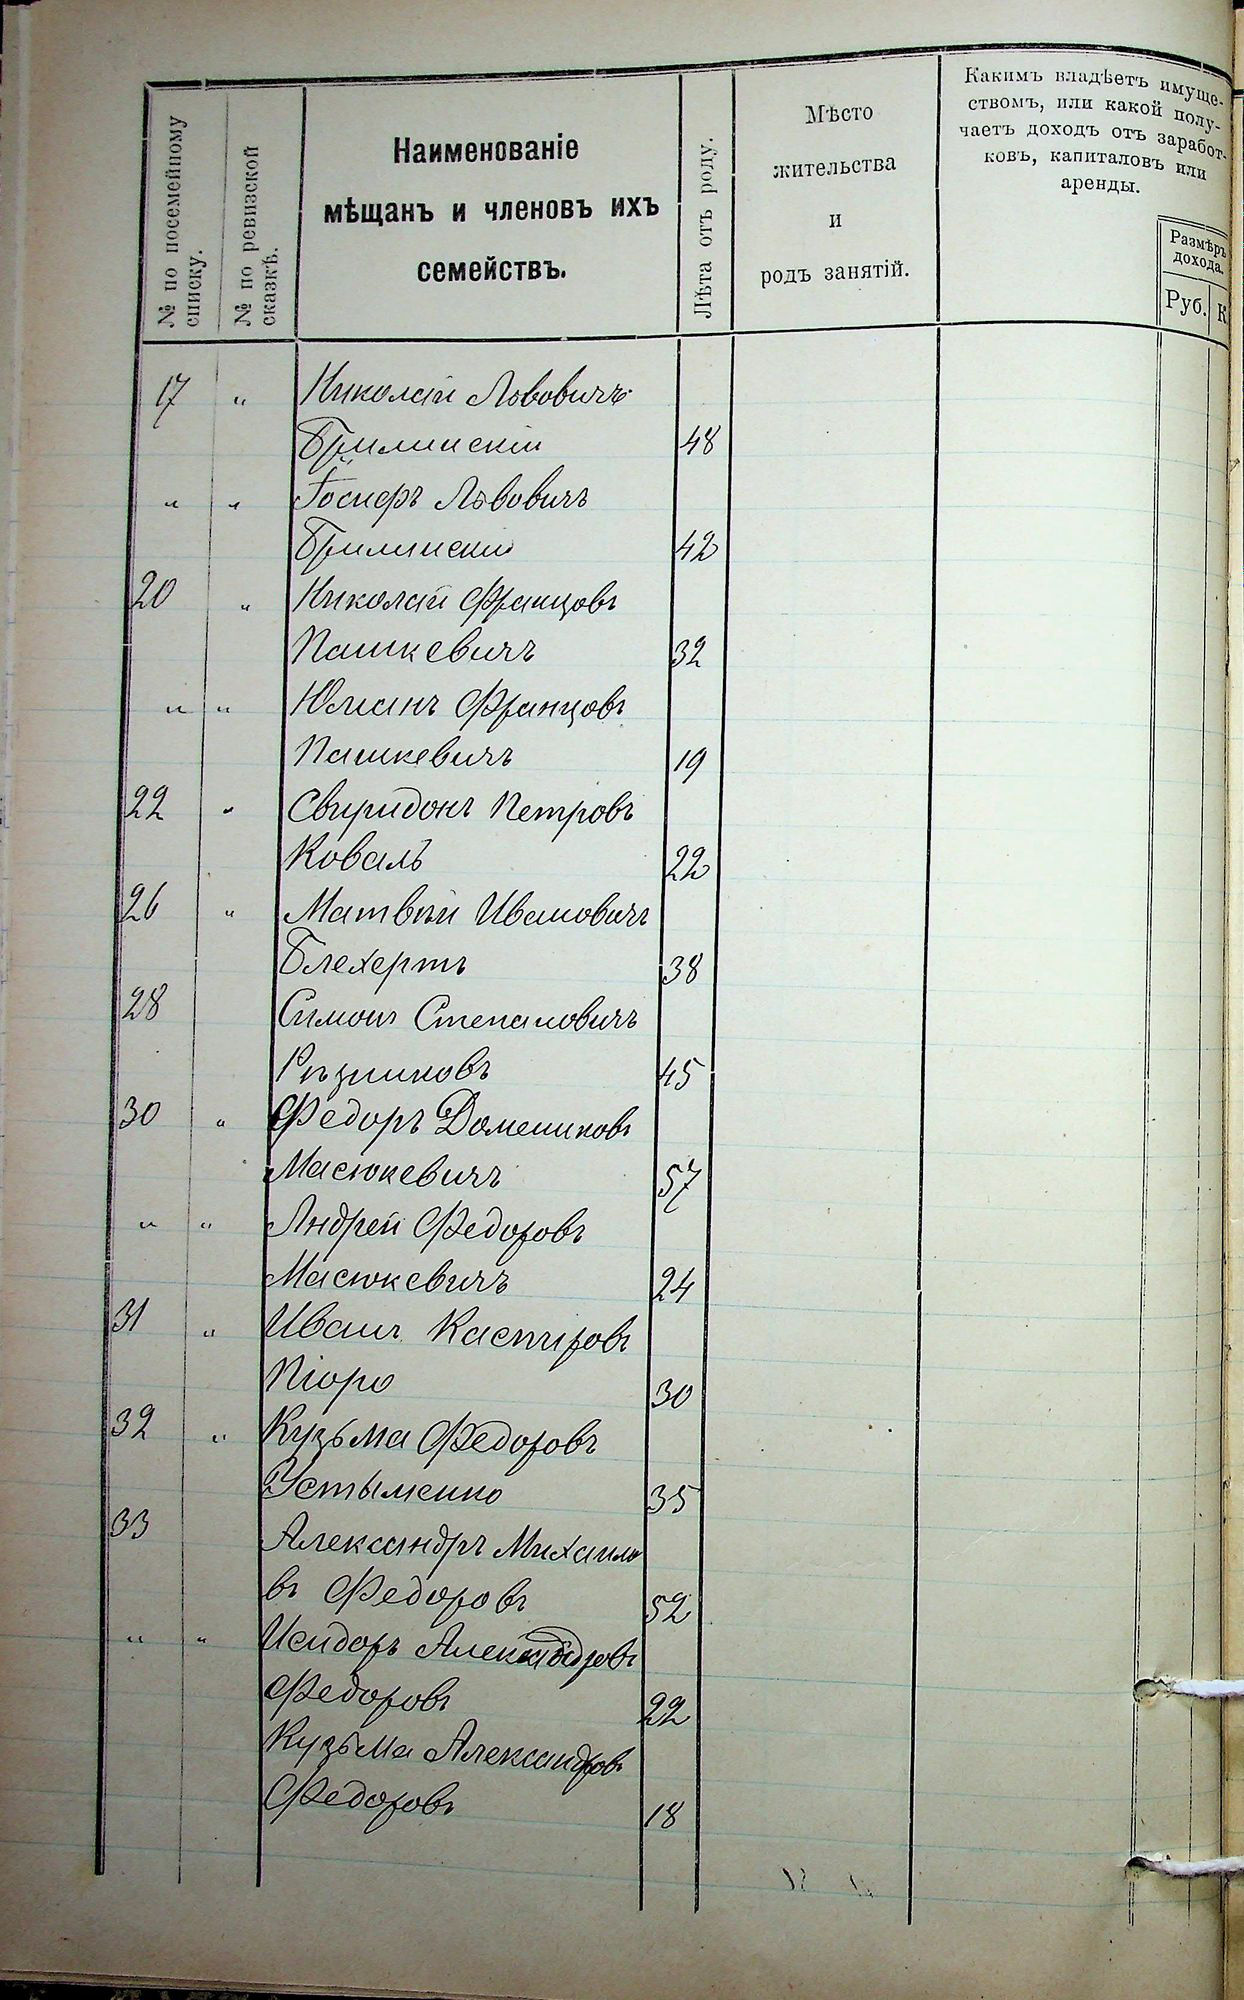 № по посемейному
списку.
№ по ревизской
сказкѣ.
Наименованіе
мѣщанъ и членовъ ихъ
семействъ.
Лѣта отъ роду.
Мѣсто
жительства
и
родъ занятій.
Какимъ владѣетъ имуще-
ствомъ, или какой полу-
чаетъ доходъ отъ заработ-
ковъ, капиталовъ или
аренды.
Размѣръ
дохода.
Руб. К
17 " Николай Львовичъ
Брилинскій 48
" " Іосифъ Львовичъ
Брилинскій 42
20 " Николай Францовъ
Пашкевичъ 32
" " Юлианъ Францовъ
Пашкевичъ 19
22 " Свиридонъ Петровъ
Коваль 22
26 " Матвѣй Ивановичъ
Блехертъ 38
28 Симонъ Степановичъ
Рѣзниковъ 45
30 " Федоръ Домениковъ
Масюкевичъ 57
" " Андрей Федоровъ
Масюкевичъ 24
31 " Иванъ Касперовъ
Пюро 30
32 " Кузьма Федоровъ
Устыменко 35
33 Александръ Михаило
въ Федоровъ 52
" " Исидоръ Александровъ
Федоровъ 22
Кузьма Александровъ
Федоровъ 18